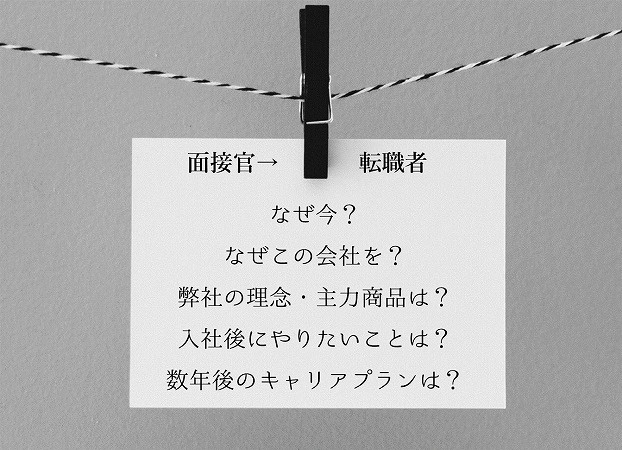 面接官→ 転職者
なぜ今？
なぜこの会社を？
弊社の理念・主力商品は？
入社後にやりたいことは？
数年後のキャリアプランは？